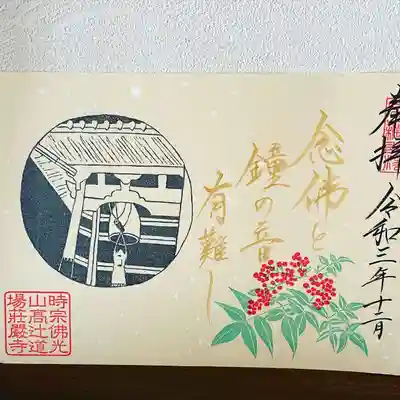 奉拝
令和三年十二月
念佛と
鐘の音
有難し
時宗佛光
山高辻道
場荘厳寺